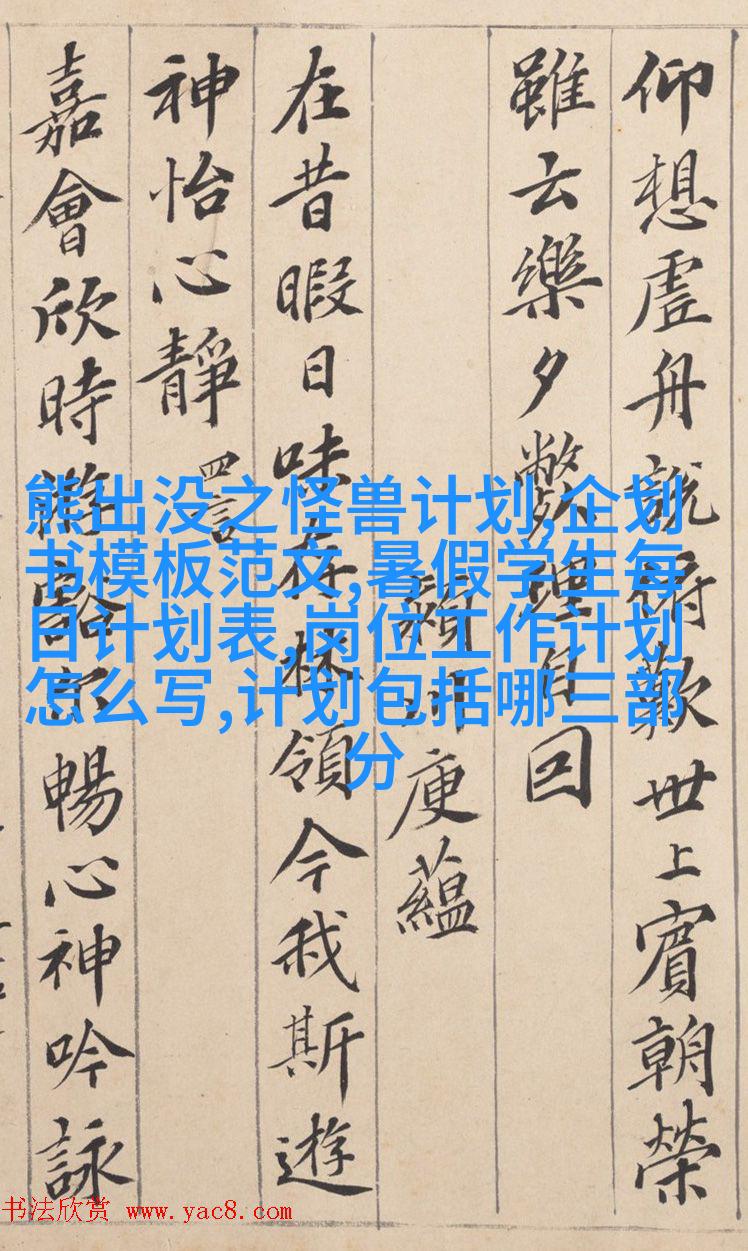 仰想虛舟說俯歎世上賓朝榮
雖云樂夕斃理自回
潁川庾蘊
在昔暇日味存林領今我斯遊
神怡心靜 四言
嘉會欣時游豁尔暢心神吟詠
熊出没之怪兽计划,企划
书模板范文,暑假学生每
日计划表,岗位工作计划
怎么写,计划包括哪三部
分
书法欣赏 www.yac8.com